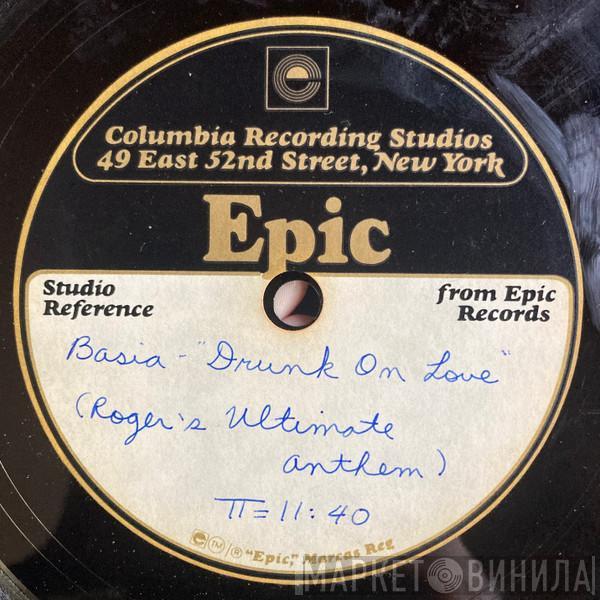 Columbia Recording Studios
49 East 52nd Street, New York
Epic
Studio
Reference
from Epic
Records
Basia - "Drunk On Love"
(Roger's Ultimate
anthem)
TT = 11:40
"Epic," Marcas Reg
МАРКЕТ ВИНИЛА